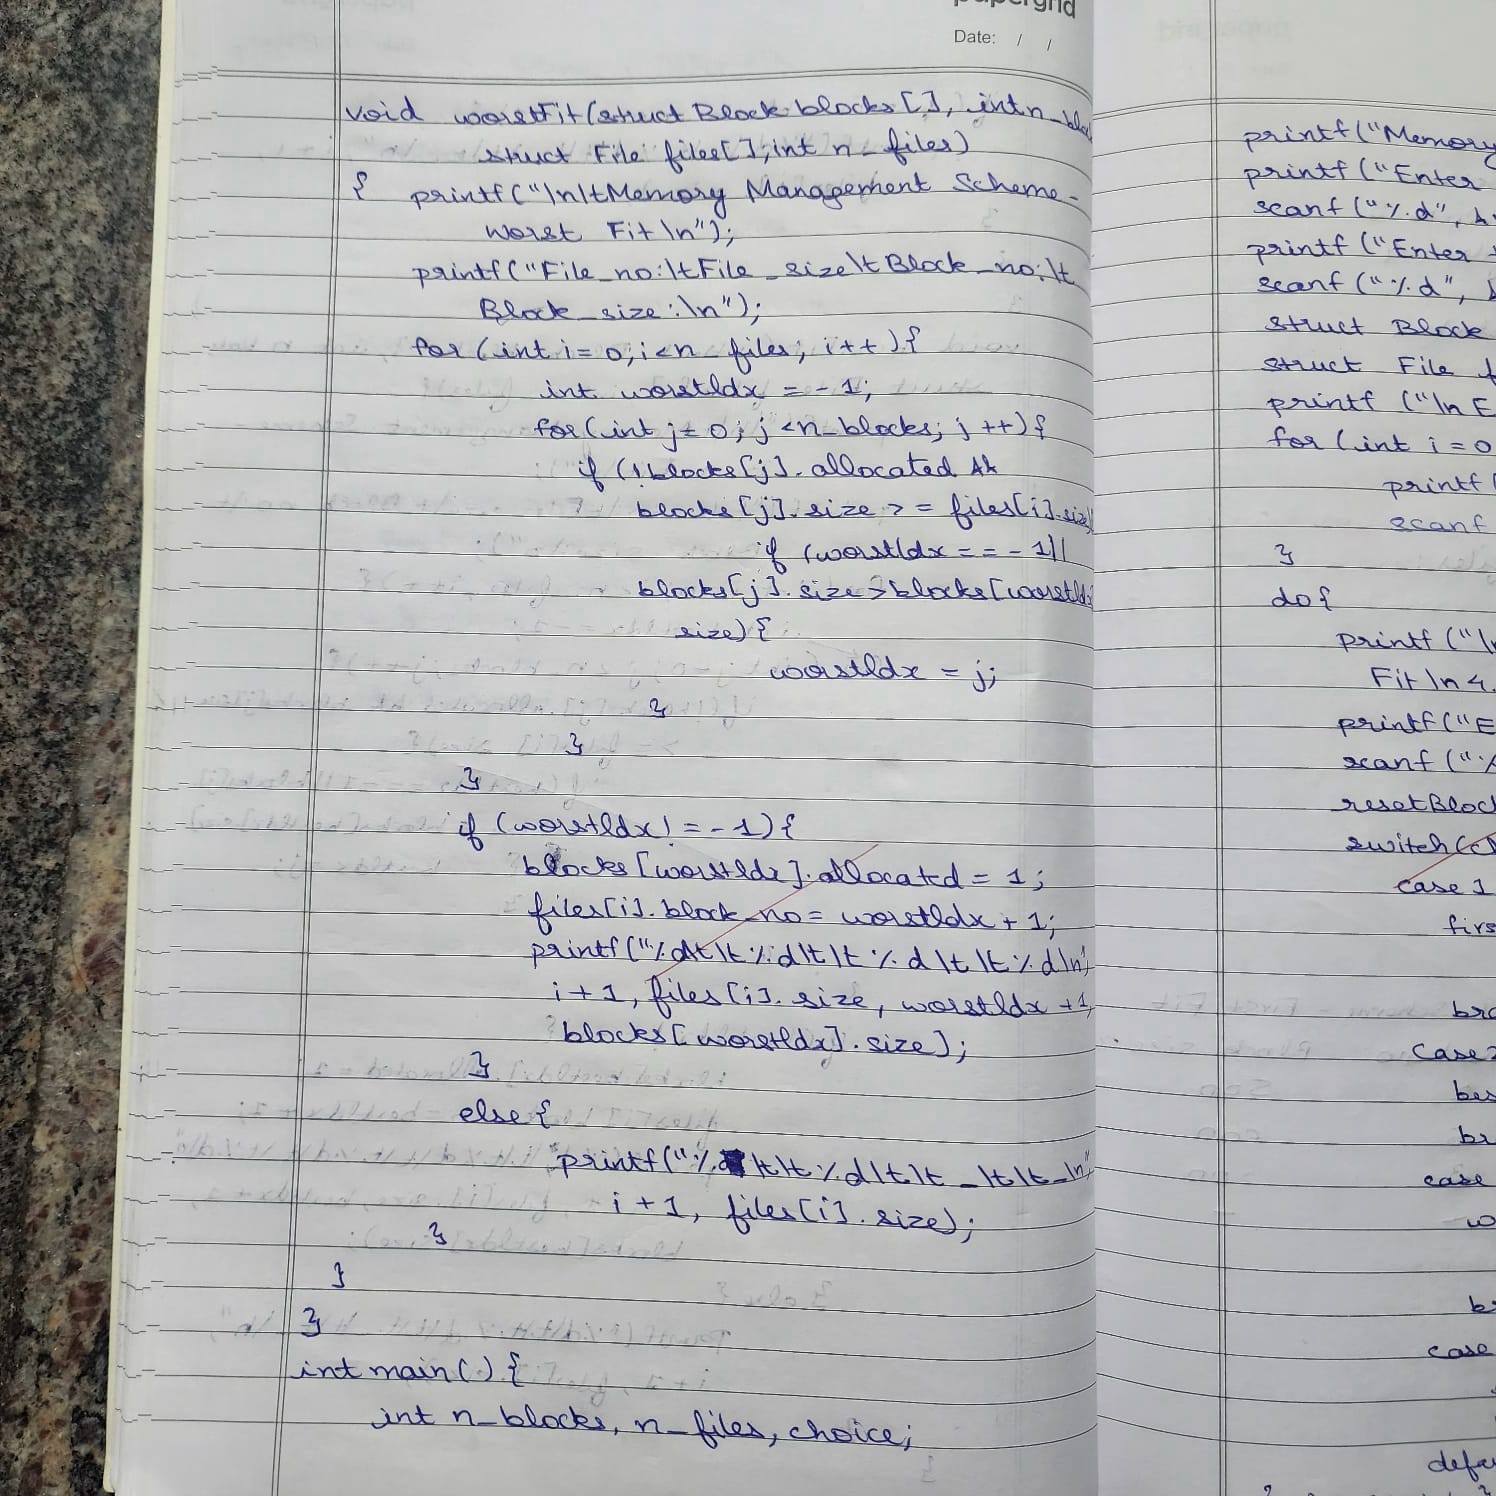 papergrid
Date: / /
void worstFit(struct Block blocks[], int n_bloc
struct File files[], int n_files)
{ printf("\n\tMemory Management Scheme -
Worst Fit\n");
printf("File_no:\tFile_size\tBlock_no:\t
Block_size:\n");
for(int i=0;i<n_files; i++){
int worstIdx = -1;
for(int j=0; j<n_blocks; j++){
if (!blocks[j].allocated &&
blocks[j].size >= files[i].size
if (worstIdx == -1||
blocks[j].size>blocks[worstIdx
size){
worstIdx = j;
}
}
}
if (worstIdx != -1){
blocks[worstIdx].allocated = 1;
files[i].block_no = worstIdx + 1;
printf("%d\t\t%d\t\t%d\t\t%d\n",
i+1, files[i].size, worstIdx +1,
blocks[worstIdx].size);
}
else{
printf("%d\t\t%d\t\t_\t\t_\n",
i+1, files[i].size);
}
}
}
int main() {
int n_blocks, n_files, choice;
printf("Memory
printf("Enter
scanf("%d", &
printf("Enter
scanf("%d", &
struct Block
struct File f
printf("\nE
for(int i=0
printf(
scanf
}
do{
printf("\n
Fit\n4.
printf("E
scanf("%
resetBloc
switch(ch
case 1
firs
bre
case 2
bes
br
case
wo
br
case
defa